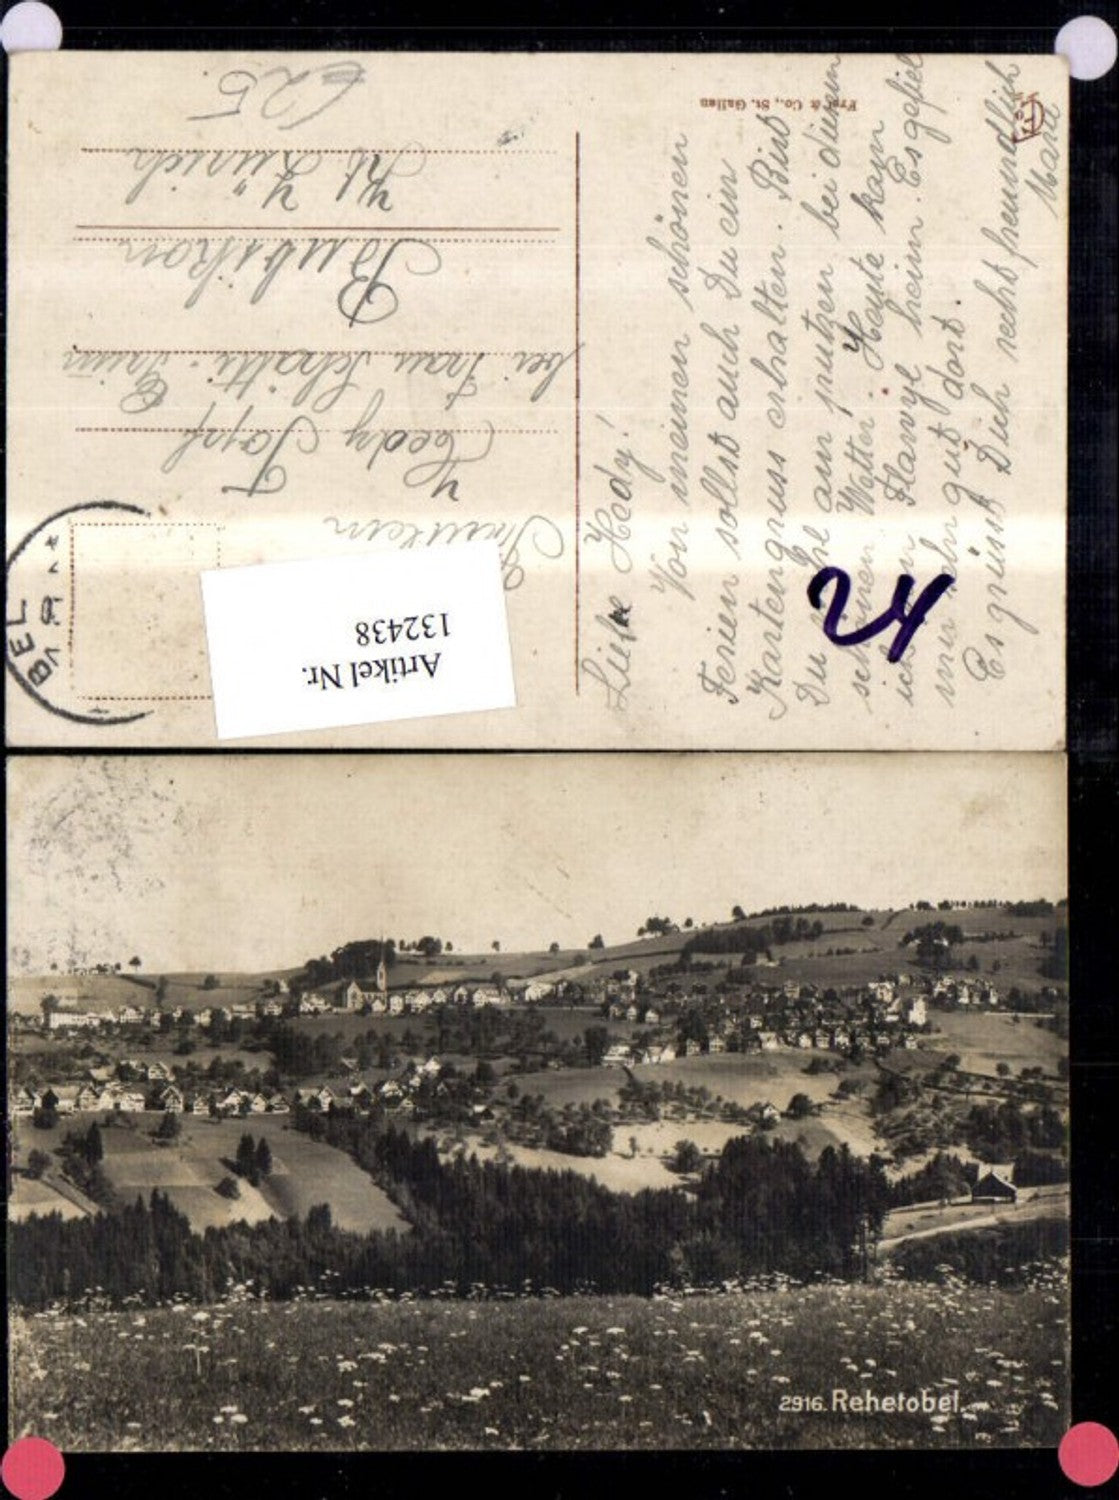 Liebe Hedy!
Von meinen schönen
Ferien sollst auch Du ein
Kartengruss erhalten. Bist
Du am putzen bei diesem
schönen Wetter. Heute kam
ich von Flawyl heim. Es gefiel
mir sehr gut dort.
Es grüsst Dich recht freundlich
Marie
Frei & Co., St. Gallen
24
Fräulein
Hedy Topf
bei Frau Schätti
Bubikon
Kt. Zürich
625
BEL
Artikel Nr.
132438
2916. Rehetobel.